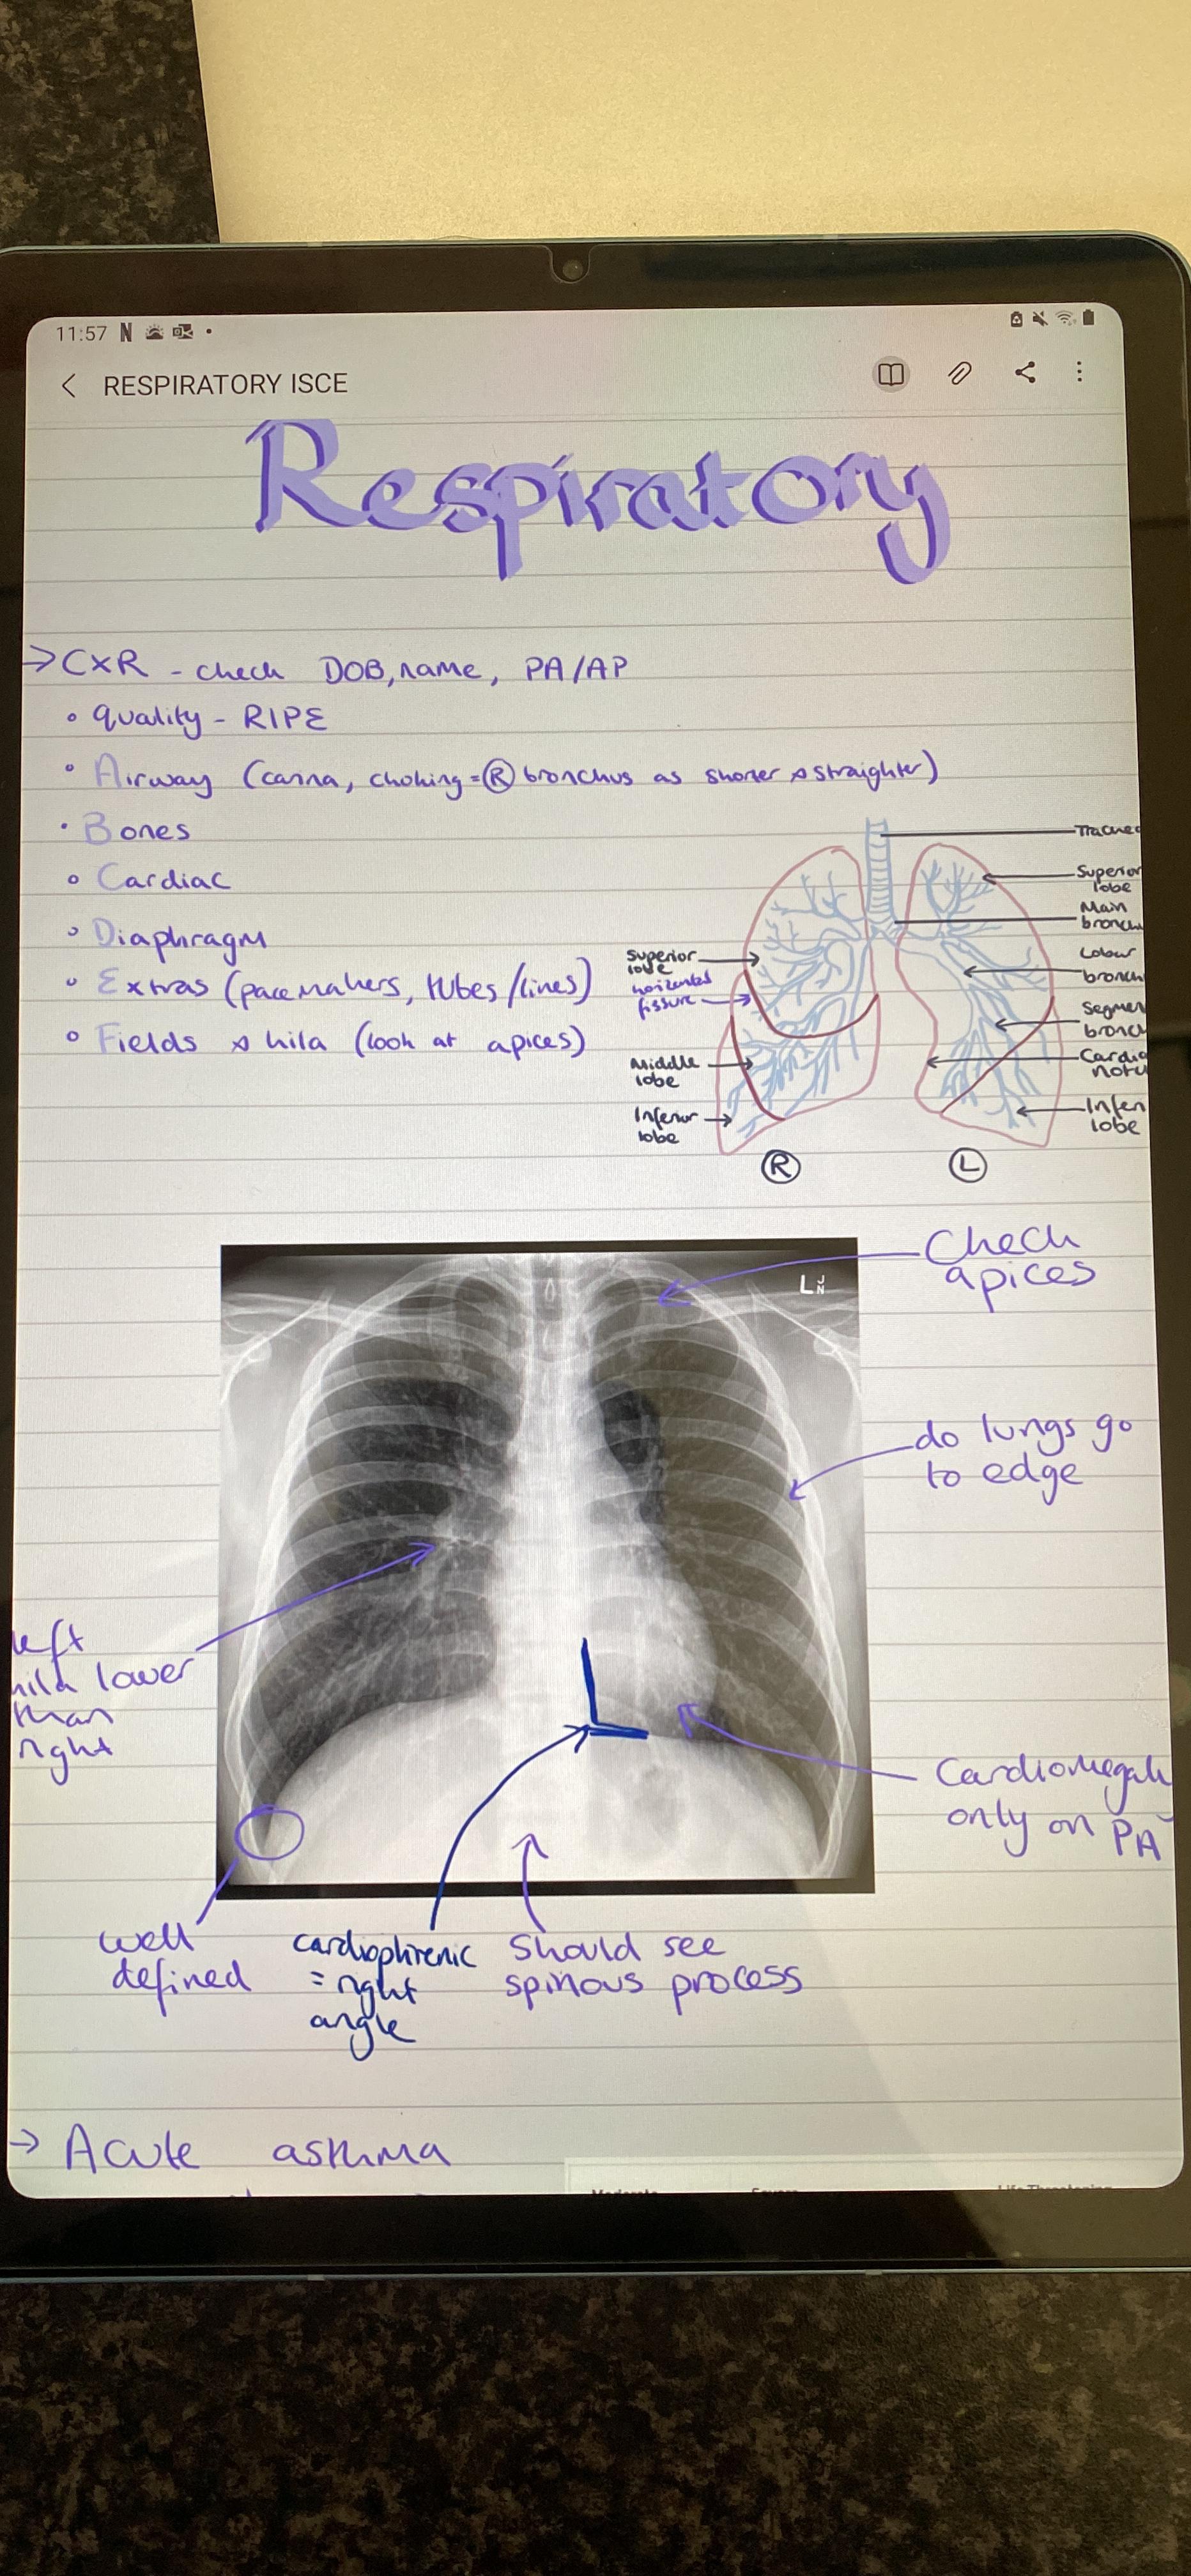 11:57 N
RESPIRATORY ISCE
Respiratory
→ CXR - check DOB, name, PA/AP
• quality - RIPE
• Airway (carina, choking = Ⓡ bronchus as shorter & straighter)
• Bones
• Cardiac
• Diaphragm
• Extras (pacemakers, tubes/lines)
• Fields & hila (look at apices)
Trachea
Superior
lobe
Main
bronchu
Lobar
bronch
Segmen
bronch
Cardia
notc
Inferi
lobe
Superior
lobe
horizontal
fissure
Middle
lobe
Inferior
lobe
Ⓡ Ⓛ
Check
apices
L JN
do lungs go
to edge
left
hila lower
than
right
Cardiomegaly
only on PA
well
defined
cardiophrenic
= right
angle
Should see
spinous process
→ Acute asthma